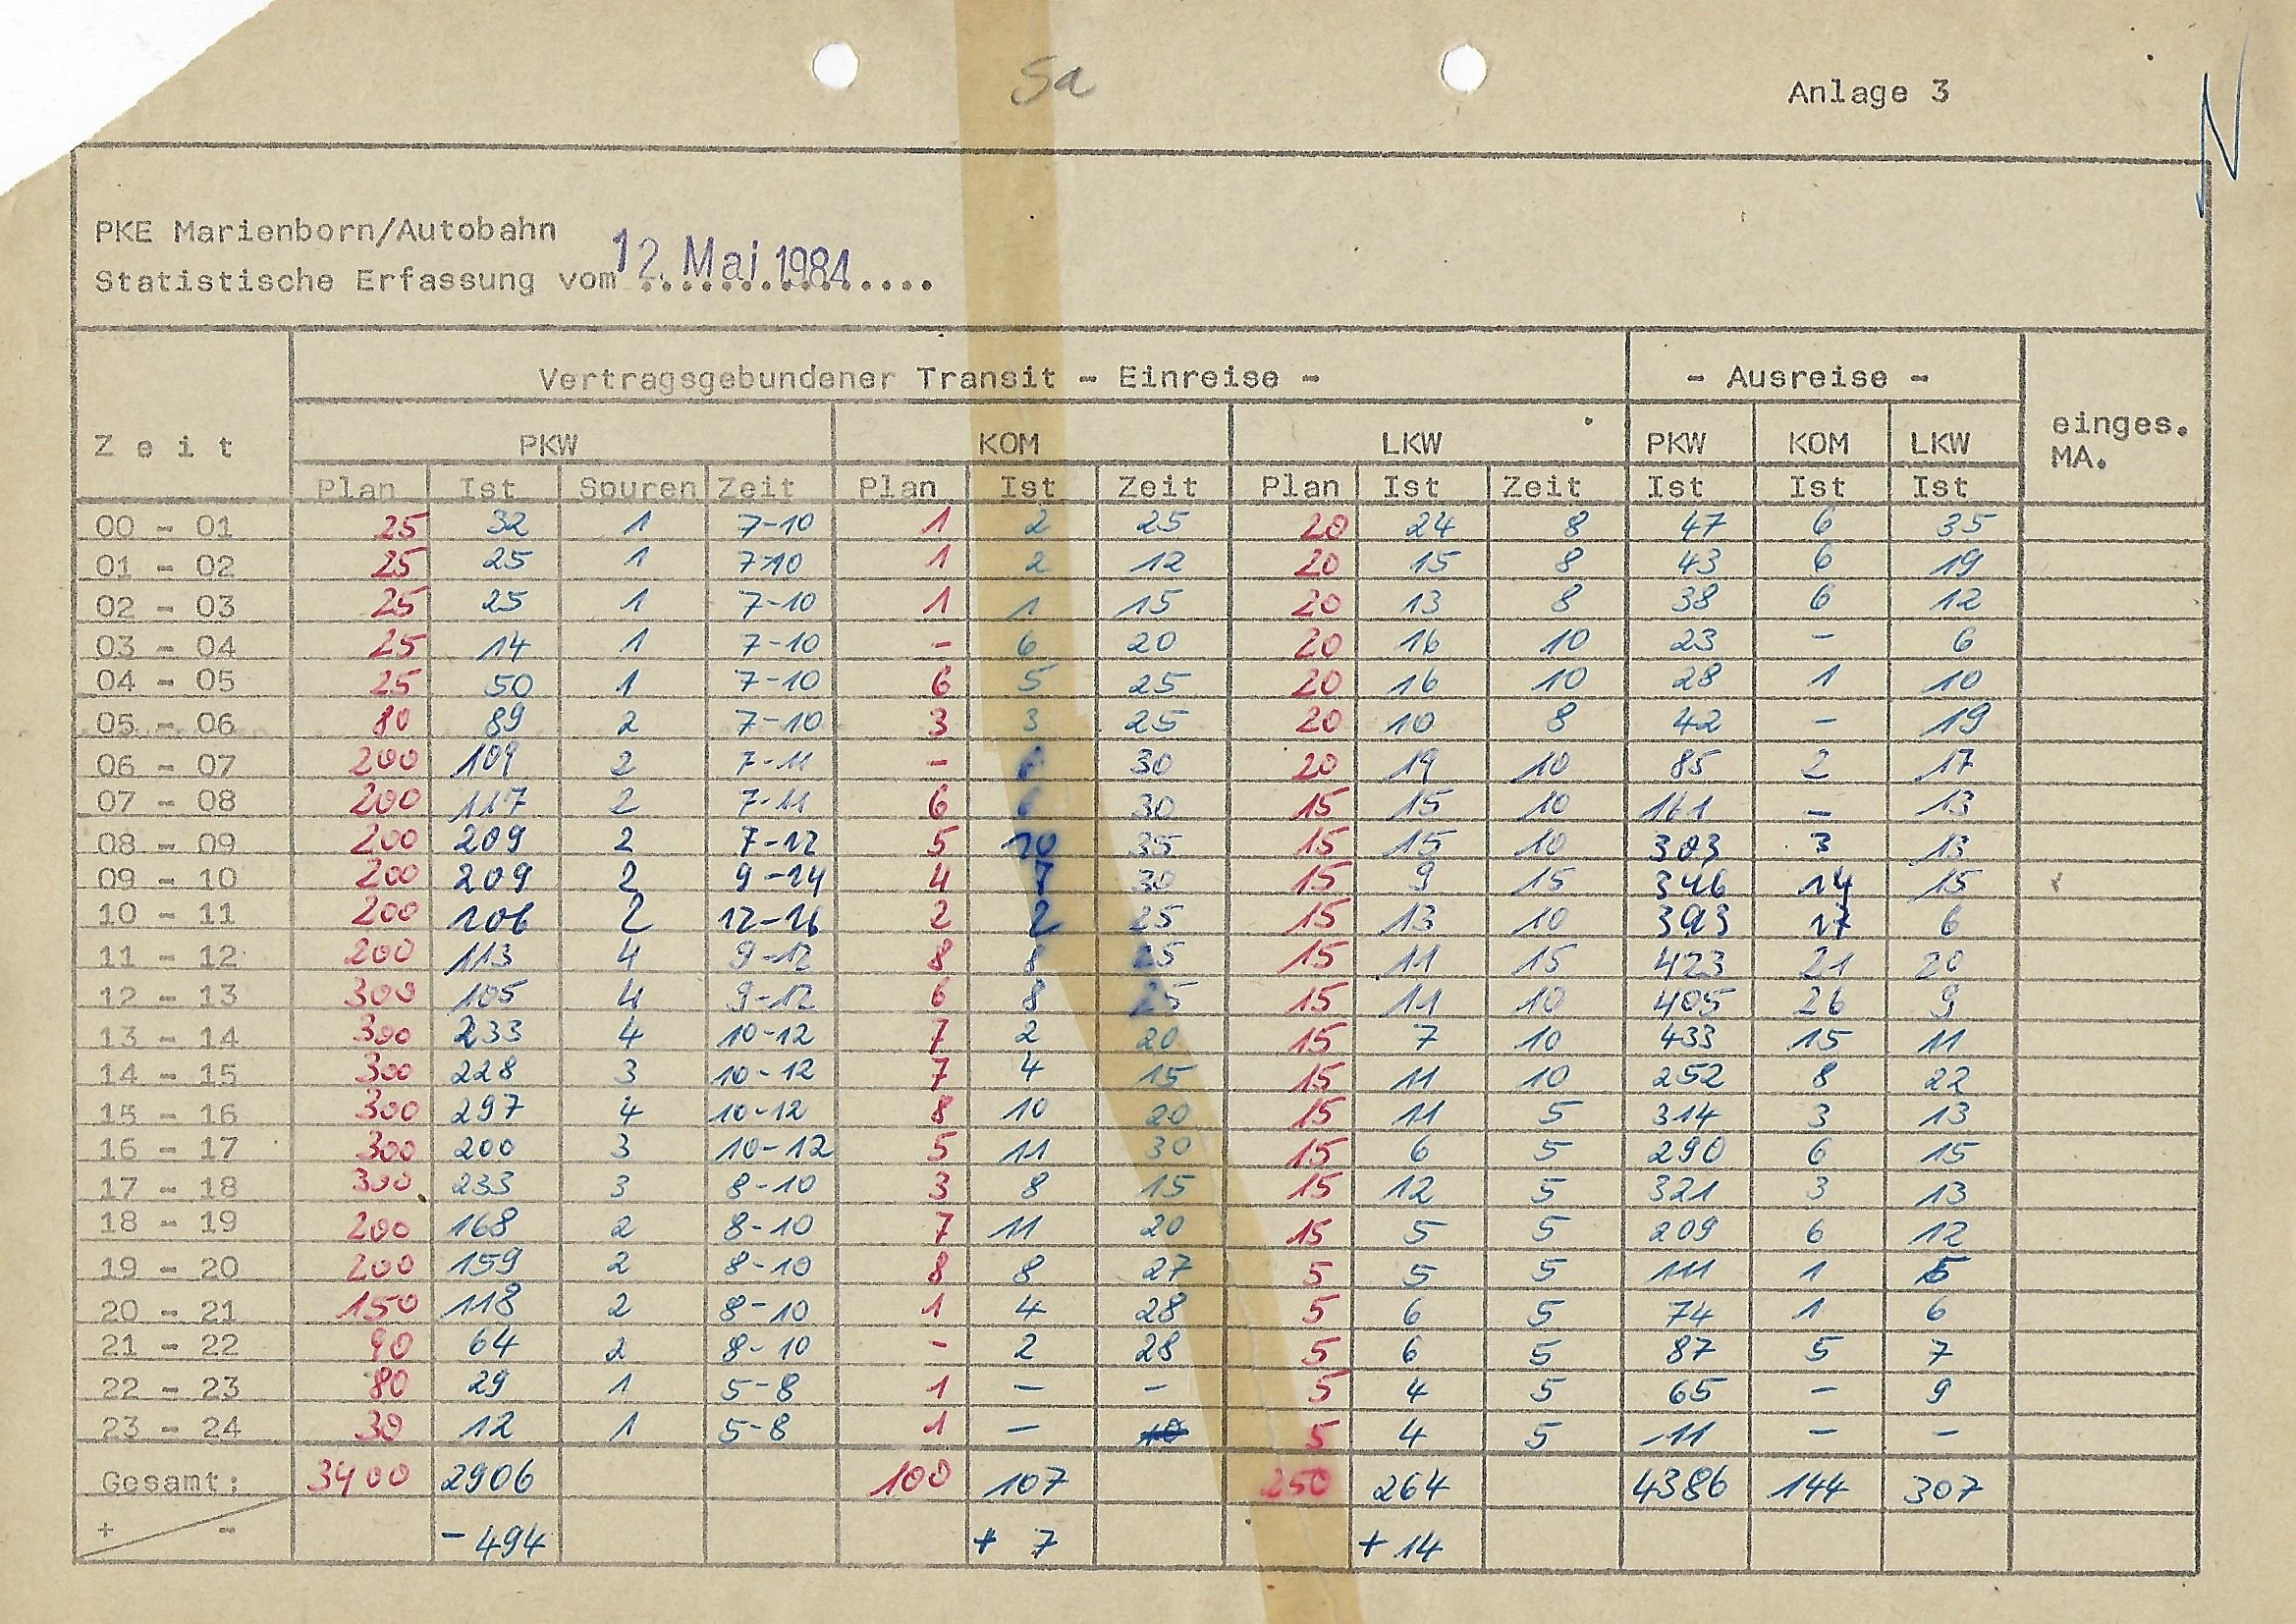 Sa
Anlage 3
PKE Marienborn/Autobahn
Statistische Erfassung vom 12. Mai 1984
Vertragsgebundener Transit - Einreise - - Ausreise -
Z e i t PKW KOM LKW PKW KOM LKW einges. MA.
Plan Ist Spuren Zeit Plan Ist Zeit Plan Ist Zeit Ist Ist Ist
00 - 01 25 32 1 7-10 1 2 25 20 24 8 47 6 35
01 - 02 25 25 1 7-10 1 2 12 20 15 8 43 6 19
02 - 03 25 25 1 7-10 1 1 15 20 13 8 38 6 12
03 - 04 25 14 1 7-10 - 6 20 20 16 10 23 - 6
04 - 05 25 50 1 7-10 6 5 25 20 16 10 28 1 10
05 - 06 80 89 2 7-10 3 3 25 20 10 8 42 - 19
06 - 07 200 109 2 7-11 - 30 20 19 10 85 2 17
07 - 08 200 117 2 7-11 6 30 15 15 10 161 - 13
08 - 09 200 209 2 7-12 5 10 35 15 15 10 303 3 13
09 - 10 200 209 2 9-14 4 7 30 15 9 15 346 14 15
10 - 11 200 106 2 12-16 2 2 25 15 13 10 393 17 6
11 - 12 200 113 4 9-12 8 8 25 15 11 15 423 21 20
12 - 13 300 105 4 9-12 6 8 25 15 11 10 405 26 9
13 - 14 300 233 4 10-12 7 2 20 15 7 10 433 15 11
14 - 15 300 228 3 10-12 7 4 15 15 11 10 252 8 22
15 - 16 300 297 4 10-12 8 10 20 15 11 5 314 3 13
16 - 17 300 200 3 10-12 5 11 30 15 6 5 290 6 15
17 - 18 300 233 3 8-10 3 8 15 15 12 5 321 3 13
18 - 19 200 168 2 8-10 7 11 20 15 5 5 209 6 12
19 - 20 200 159 2 8-10 8 8 27 5 5 5 111 1 5
20 - 21 150 118 2 8-10 1 4 28 5 6 5 74 1 6
21 - 22 90 64 2 8-10 - 2 28 5 6 5 87 5 7
22 - 23 80 29 1 5-8 1 - - 5 4 5 65 - 9
23 - 24 30 12 1 5-8 1 - 5 4 5 11 - -
Gesamt: 3400 2906 100 107 250 264 4386 144 307
+ - - 494 + 7 + 14